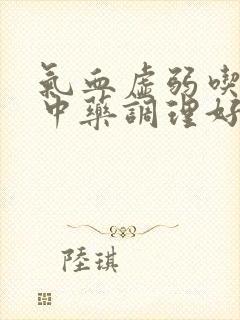 氣血虛弱喫
中藥調理好
陸琪